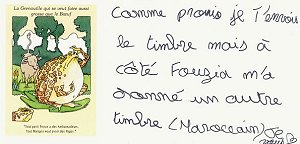 La Grenouille qui se veut faire aussi
grosse que le Bœuf
"Tout petit Prince a des Ambassadeurs,
Tout Marquis veut avoir des Pages."
Comme promis je t'envoie
le timbre mais à
côté Fouzia m'a
donné un autre
timbre (Marocain)